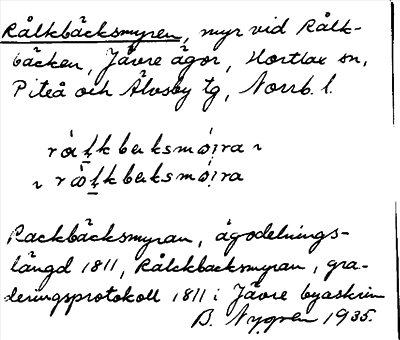 Rålkbäcksmyren, myr vid Rålk-
bäcken, Jävre ägor, Hortlax sn,
Piteå och Älvsby tg, Norrb. l.
råłkbɐksmó̤ı̣ra ɿ
ɿ rò̤łkbɐksmó̤ı̣ra
Rackbäcksmyran, ägodelnings-
längd 1811, Rålckbacksmyran, gra-
deringsprotokoll 1811 i Jävre byaskrin
B. Nygren 1935.